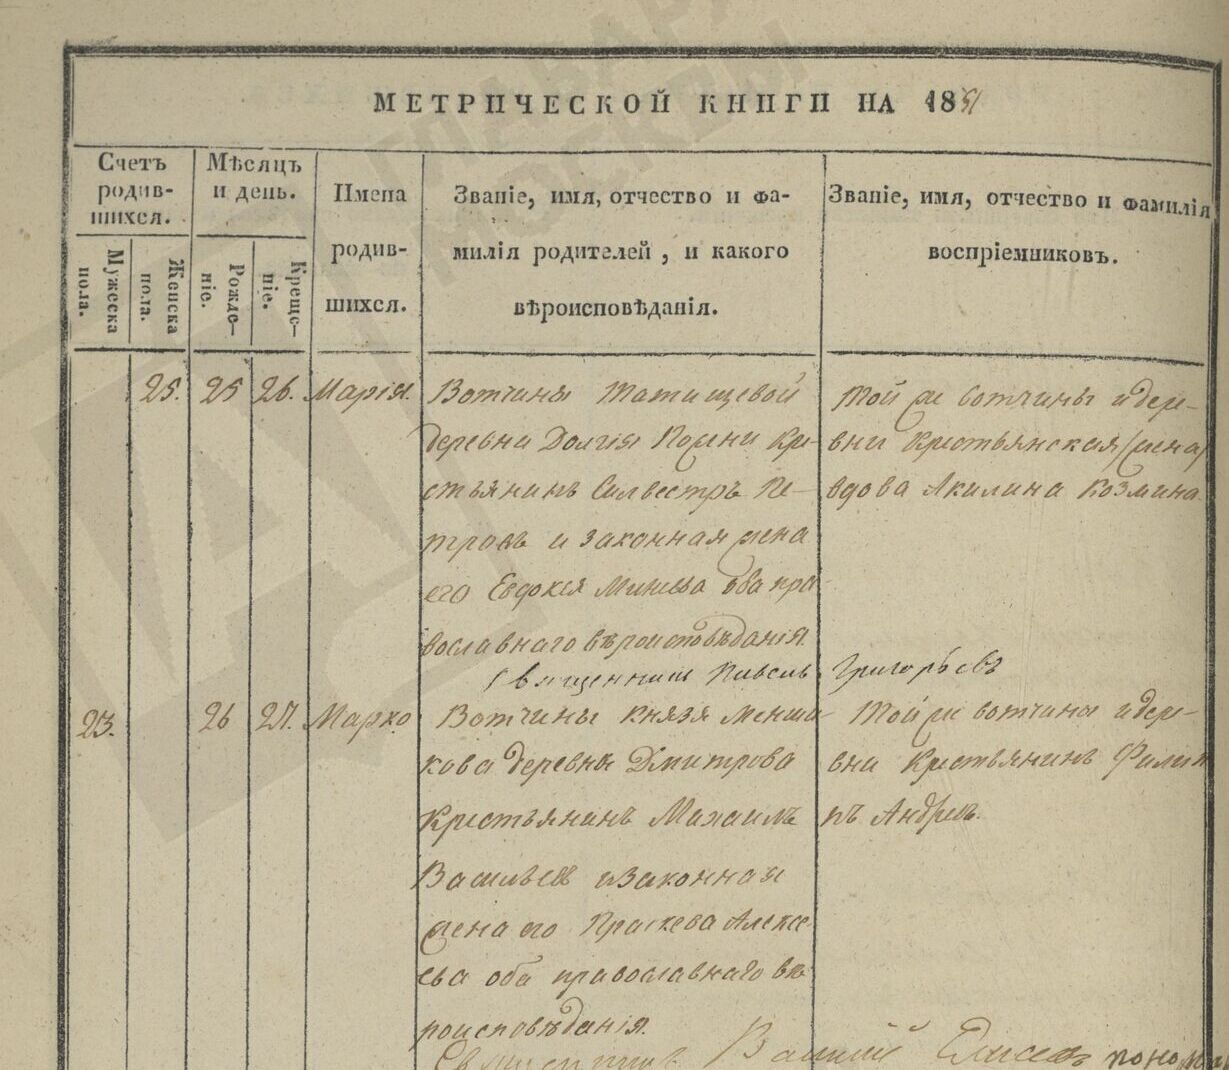 МЕТРИЧЕСКОЙ КНИГИ НА 1851
Счетъ родив-шихся.
Мѣсяцъ и день.
Имена родив-шихся.
Званіе, имя, отчество и фа-
милія родителей, и какого
вѣроисповѣданія.
Званіе, имя, отчество и фамилія
воспріемниковъ.
Мужеска пола.
Женска пола.
Рожде-ніе.
Креще-ніе.
25. 25 26. Марія.
Вотчины Татищевой
деревни Долгія Пожни кре-
стьянинъ Силвестръ Пе-
тровъ и законная жена
его Евдокія Минева оба пра-
вославнаго вѣроисповѣданія.
Той же вотчины и дере-
вни крестьянская (жена)
вдова Акилина Козмина
Священникъ Павелъ Григорьевъ
23. 26 27. Марко
Вотчины князя Менши-
кова деревны Дмитрова
крестьянинъ Михаилъ
Васильевъ и законная
жена его Праскева Алексе-
ева оба православнаго вѣ-
роисповѣданія.
Той же вотчины и дере-
вни крестьянинъ Филип-
пъ Андреевъ.
Священникъ Василій